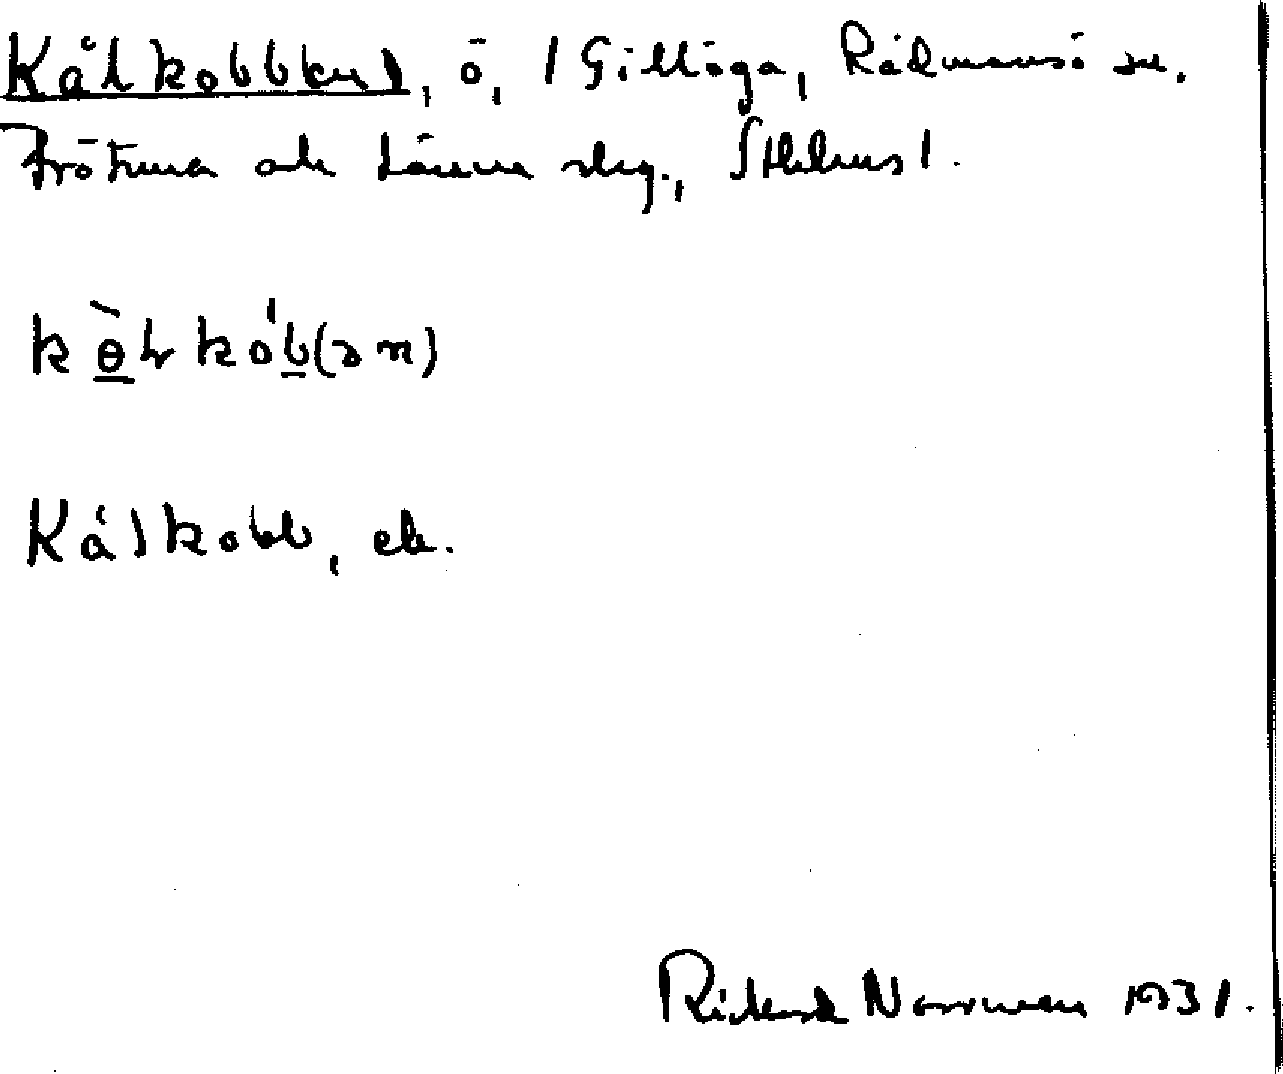 Kålkobbken, ö, i Gillöga, Rådmansö sn,
Frötuna och Länna skg., Sthlms l.
kɵ̀lkób(ən)
Kålkobb, ek.
Rickard Norrman 1931.